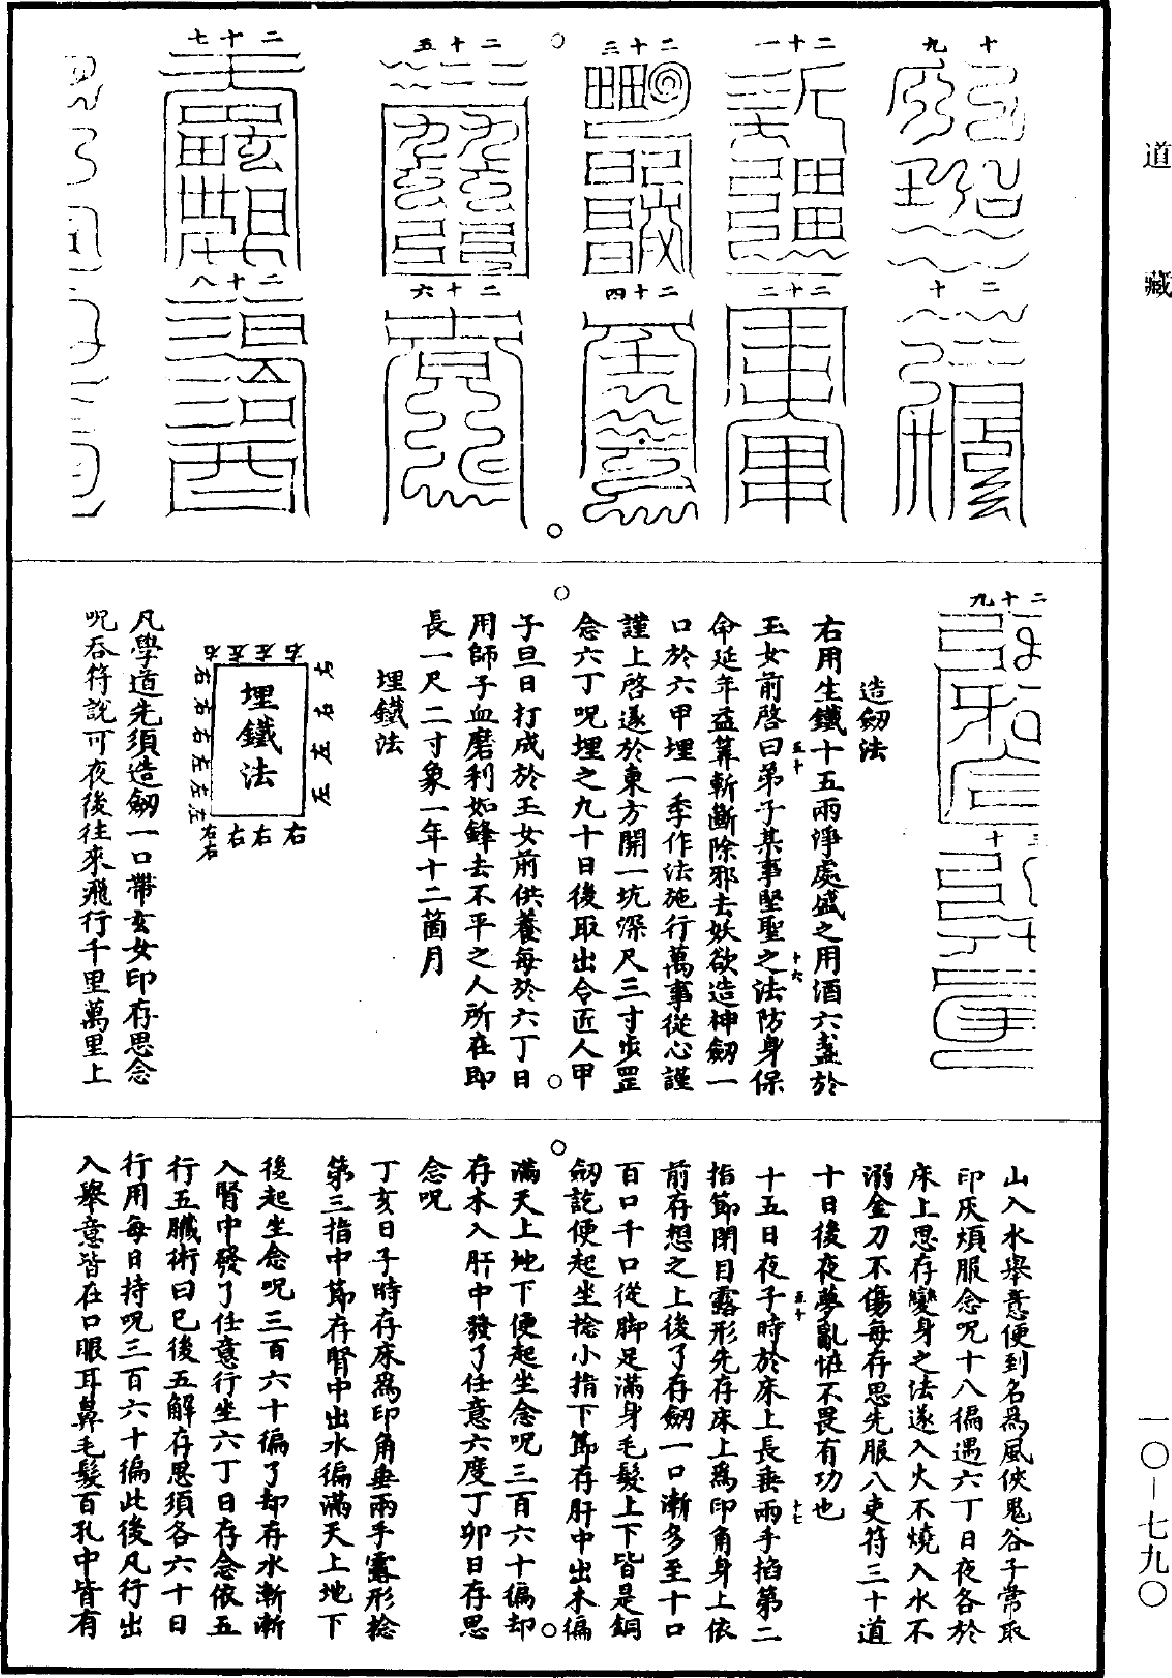 道藏
一〇—七九〇
十九
二十
二十一
二十二
二十三
二十四
二十五
二十六
二十七
二十八
二十九
三十
造劒法
右用生鐵十五兩淨處盛之用酒六盞於
玉女前啓曰弟子某事堅聖之法防身保
五十
十六
命延年益筭斬斷除邪去妖欲造神劒一
口於六甲埋一季作法施行萬事從心謹
謹上啓遂於東方開一坑深尺三寸步罡
念六丁呪埋之九十日後取出令匠人甲
子旦日打成於玉女前供養每於六丁日
用師子血磨利如鋒去不平之人所在即
長一尺二寸象一年十二箇月
埋鐵法
埋鐵法
凡學道先須造劒一口帶玄女印存思念
呪吞符說可夜後往來飛行千里萬里上
山入水舉意便到名爲風俠鬼谷子常取
印灰煩服念呪十八徧遇六丁日夜各於
床上思存變身之法遂入火不燒入水不
溺金刀不傷每存思先服八吏符三十道
十日後夜夢亂恠不畏有功也
十五日夜子時於床上長垂兩手掐第二
五十
十七
指節閉目露形先存床上爲印角身上依
前存想之上後了存劒一口漸多至十口
百口千口從脚足滿身毛髮上下皆是銅
劒訖便起坐捻小指下節存肝中出木徧
滿天上地下便起坐念呪三百六十徧却
存木入肝中發了任意六度丁卯日存思
念呪
丁亥日子時存床爲印角垂兩手露形捻
第三指中節存腎中出水徧滿天上地下
後起坐念呪三百六十徧了却存水漸漸
入腎中發了任意行坐六丁日存念依五
行五臟術曰巳後五解存思須各六十日
行用每日持呪三百六十徧此後凡行出
入舉意皆在口眼耳鼻毛髮百孔中皆有